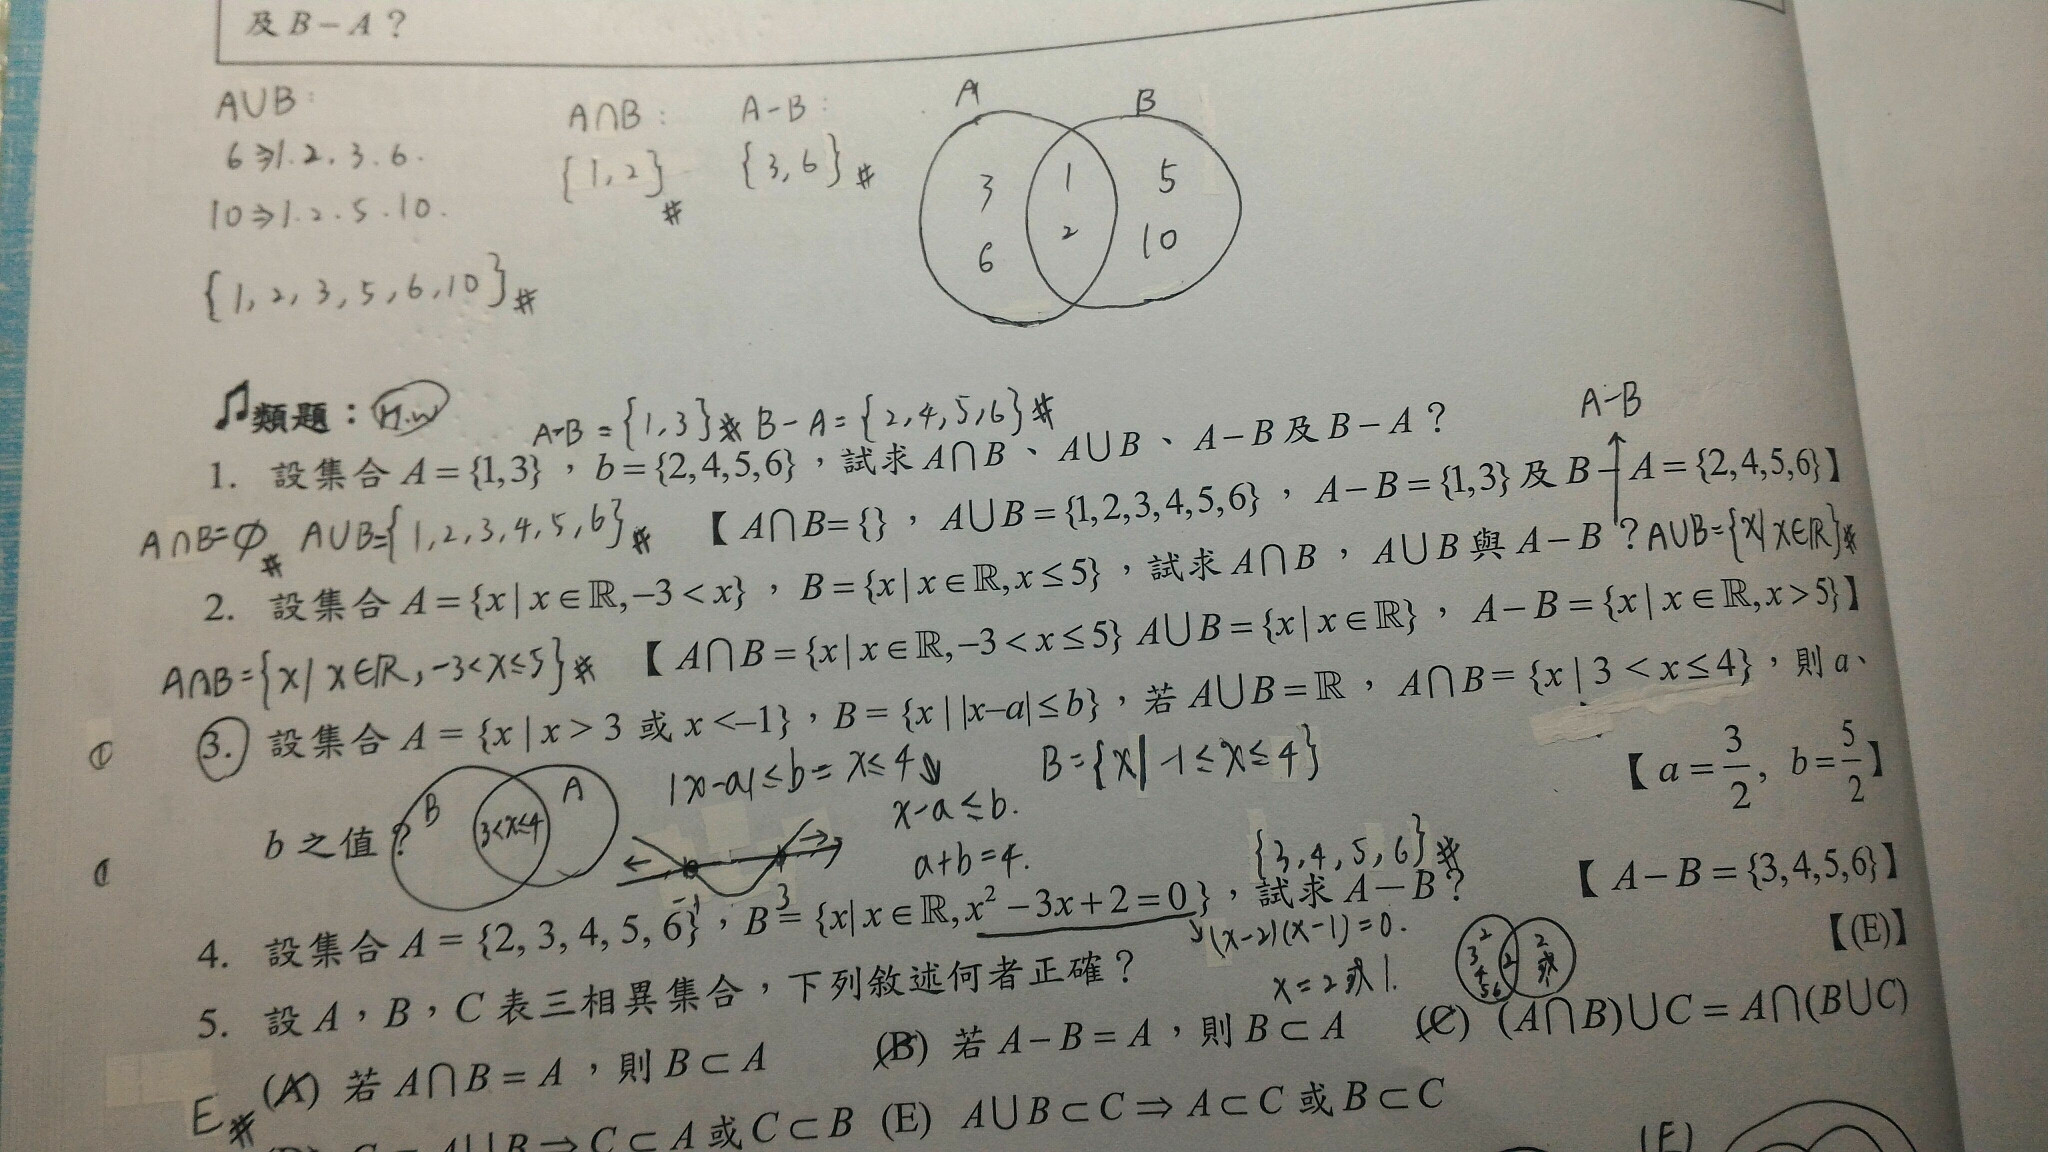 及 B－A？
A∪B：
6⇒1.2.3.6.
10⇒1.2.5.10.
{1,2,3,5,6,10}#
A∩B：
{1,2}#
A-B：
{3,6}#
A B
3 1 5
6 2 10
♫類題：H.W
A-B={1,3}# B-A={2,4,5,6}#
A-B
1. 設集合 A={1,3}，b={2,4,5,6}，試求 A∩B、A∪B、A－B 及 B－A？
A∩B=∅# A∪B={1,2,3,4,5,6}#
【A∩B={}，A∪B={1,2,3,4,5,6}，A－B={1,3} 及 B－A={2,4,5,6}】
2. 設集合 A={x|x∈ℝ,−3<x}，B={x|x∈ℝ,x≤5}，試求 A∩B，A∪B 與 A－B？
A∪B={x|x∈ℝ}#
A∩B={x|x∈ℝ,-3<x≤5}#
【A∩B={x|x∈ℝ,−3<x≤5} A∪B={x|x∈ℝ}，A－B={x|x∈ℝ,x>5}】
3. 設集合 A={x|x>3 或 x<–1}，B={x||x–a|≤b}，若 A∪B=ℝ，A∩B={x|3<x≤4}，則 a、
b 之值？
【a=3/2, b=5/2】
B 3<x≤4 A
|x-a|≤b = x≤4
x-a≤b.
a+b=4.
B={x|-1≤x≤4}
-1 3
{3,4,5,6}#
4. 設集合 A={2,3,4,5,6}，B={x|x∈ℝ,x²−3x+2=0}，試求 A－B？
【A－B={3,4,5,6}】
(x-2)(x-1)=0.
x=2或1.
5. 設 A，B，C 表三相異集合，下列敘述何者正確？
【(E)】
(A) 若 A∩B=A，則 B⊂A (B) 若 A－B=A，則 B⊂A (C) (A∩B)∪C=A∩(B∪C)
E#
A∪B⇒C⊂A 或 C⊂B (E) A∪B⊂C⇒A⊂C 或 B⊂C
(E)